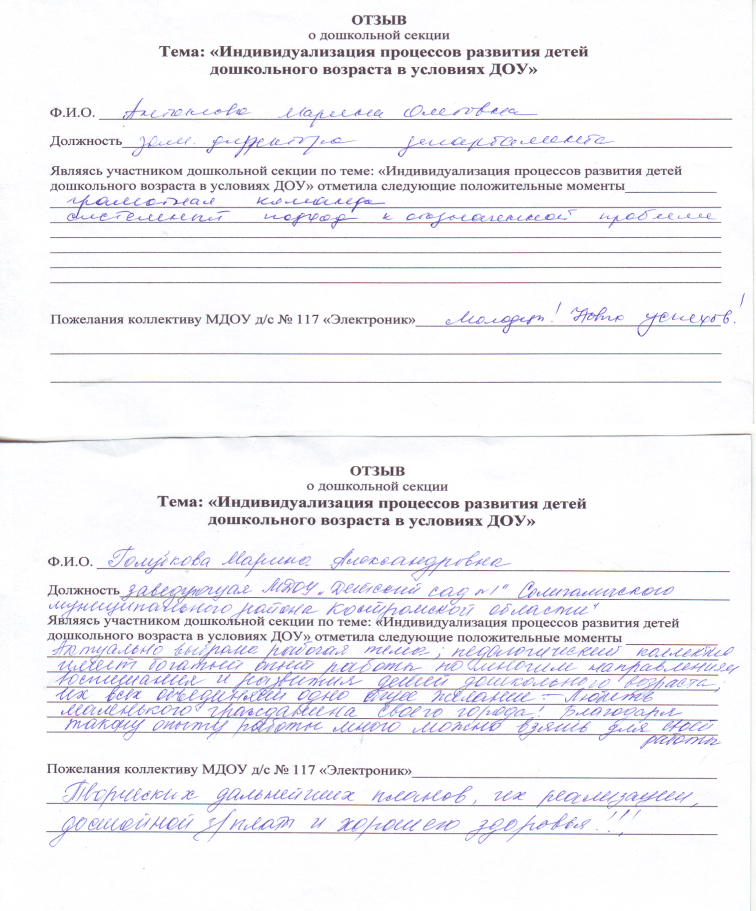 ОТЗЫВ
о дошкольной секции
Тема: «Индивидуализация процессов развития детей
дошкольного возраста в условиях ДОУ»
Ф.И.О. Антонова Марина Олеговна
Должность зам. директора департамента
Являясь участником дошкольной секции по теме: «Индивидуализация процессов развития детей
дошкольного возраста в условиях ДОУ» отметила следующие положительные моменты
грамотная команда
системный подход к обозначенной проблеме
Пожелания коллективу МДОУ д/с № 117 «Электроник» Молодцы! Новых успехов!
ОТЗЫВ
о дошкольной секции
Тема: «Индивидуализация процессов развития детей
дошкольного возраста в условиях ДОУ»
Ф.И.О. Голубкова Марина Александровна
Должность заведующая МДОУ "Детский сад №1" Солигаличского
муниципального района Костромской области"
Являясь участником дошкольной секции по теме: «Индивидуализация процессов развития детей
дошкольного возраста в условиях ДОУ» отметила следующие положительные моменты
Актуально выбрана рабочая тема; педагогический коллектив
имеет богатый опыт работы по многим направлениям
воспитания и развития детей дошкольного возраста;
их всех объединяет одно общее желание – Любить
маленького гражданина своего города! Благодаря
такому опыту работы много можно взять для своей
работы
Пожелания коллективу МДОУ д/с № 117 «Электроник»
Творческих дальнейших планов, их реализации,
достойной з/плат и хорошего здоровья!!!